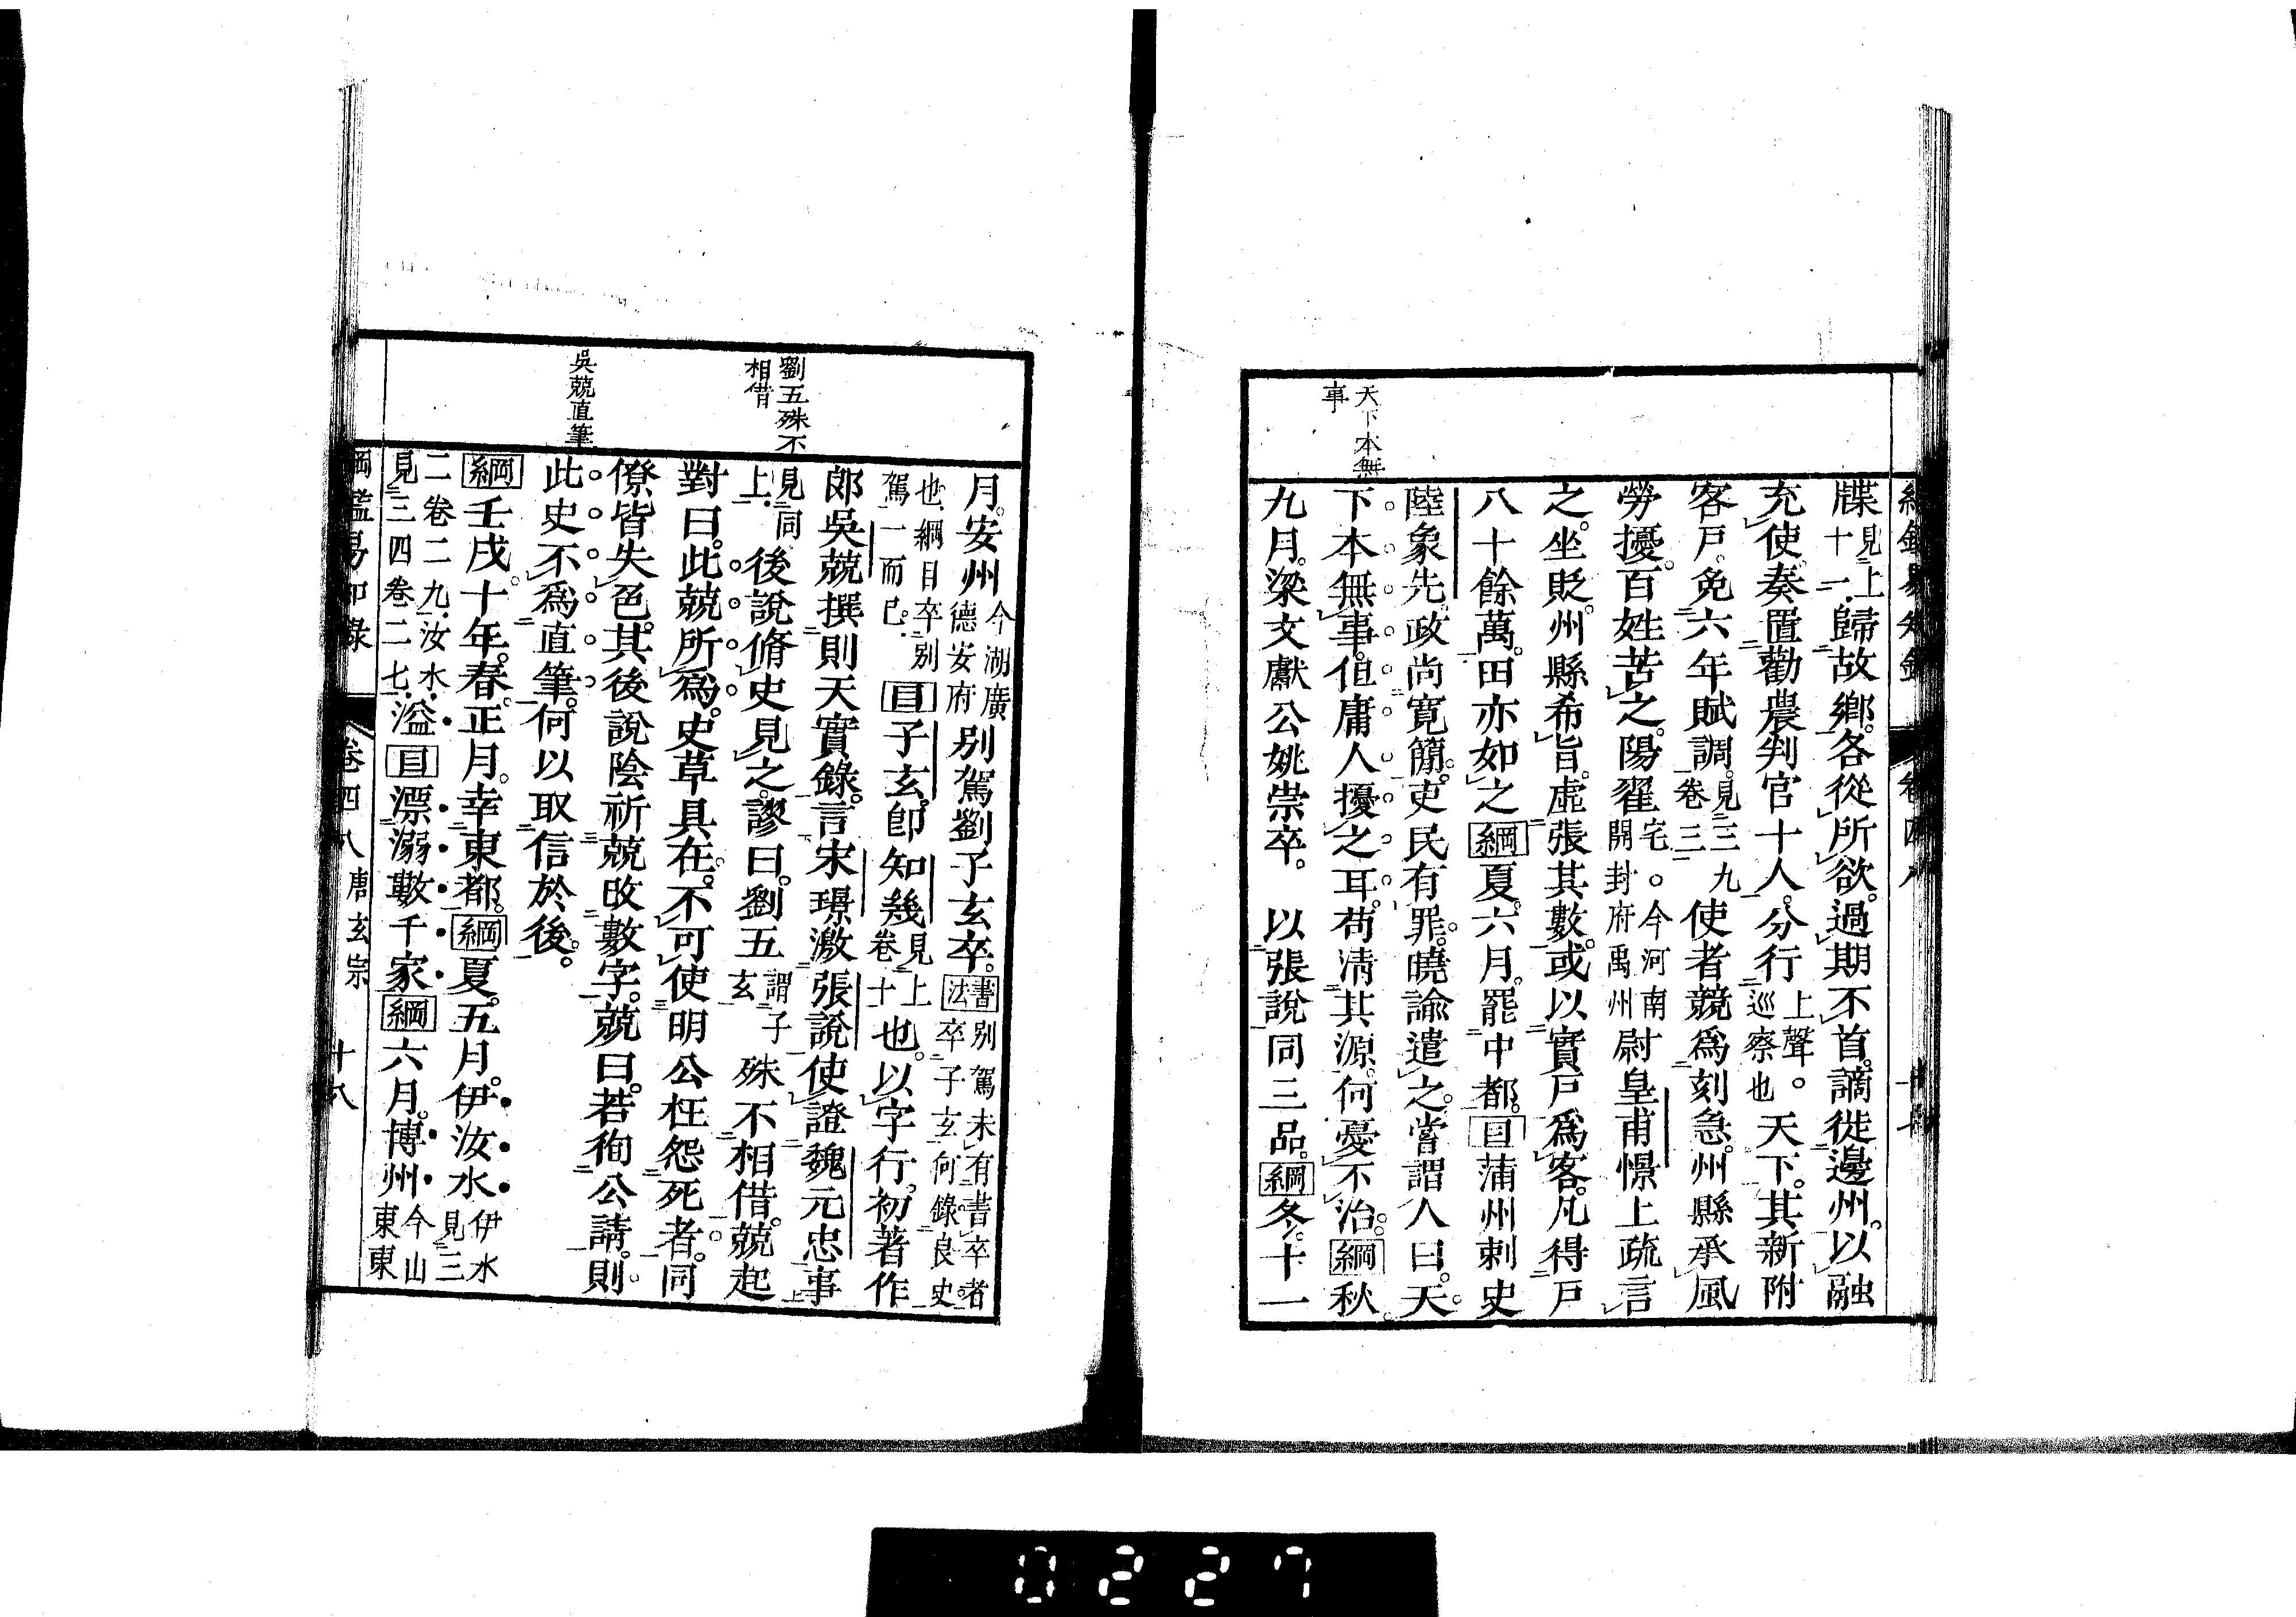 天下本無
事
牒見上十一歸故鄉。各從所欲。過期不首。謫徙邊州。以融
充使。奏置勸農判官十人。分行上聲。巡察也天下。其新附
客戶。免六年賦調。見三九卷三使者競爲刻急。州縣承風
勞擾。百姓苦之。陽翟宅。今河南開封府禹州尉皇甫憬上疏言
之。坐貶。州縣希旨。虛張其數。或以實戶爲客。凡得戶
八十餘萬。田亦如之綱夏。六月。罷中都。目蒲州刺史
陸象先。政尚寬簡。吏民有罪。曉諭遣之。嘗謂人曰。天
下本無事。但庸人擾之耳。苟清其源。何憂不治。綱秋。
九月。梁文獻公姚崇卒。 以張說同三品。綱冬。十一
劉五殊不
相借
吳兢直筆
月。安州今湖廣德安府別駕劉子玄卒。書法別駕未有書卒者卒子玄何錄良史
也綱目卒別駕一而已。目子玄。卽知幾見上卷十也。以字行。初著作
郎吳兢撰則天實錄。言宋璟激張說使證魏元忠事
見同上。後說脩史見之。謬曰。劉五謂子玄殊不相借。兢起
對曰。此兢所爲。史草具在。不可使明公枉怨死者。同
僚皆失色。其後說陰祈兢改數字。兢曰。若徇公請。則
此史不爲直筆。何以取信於後。
綱壬戌。十年。春。正月。幸東都。綱夏。五月。伊汝水伊水見三
二卷二九汝水見三四卷二七溢目漂溺數千家綱六月。博州今山東東
綱鑑易知錄 卷四八 唐玄宗 十八